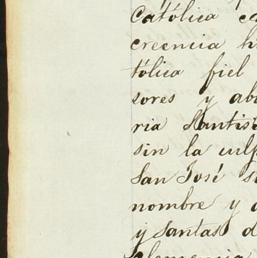 Católica
creencia h
tólica fiel
sores y abo
ria Santis
sin la culp
San José s
nombre y
y Santas d